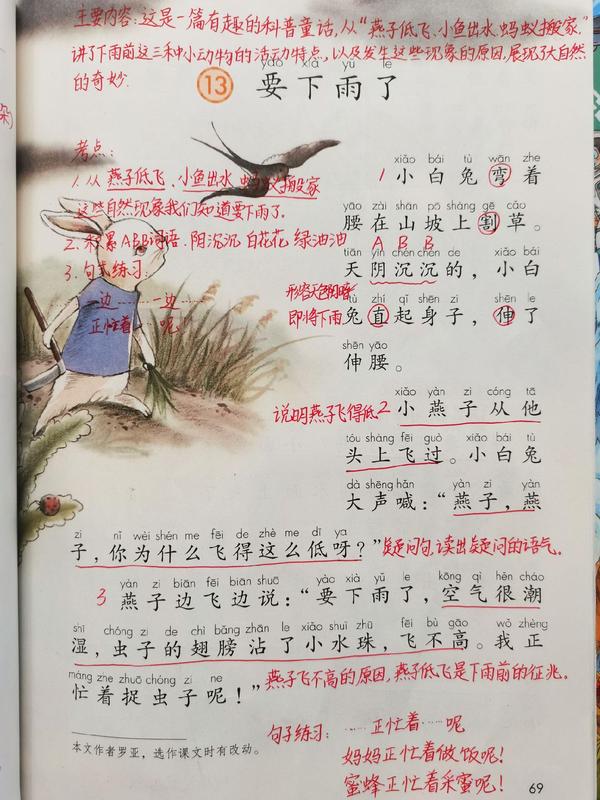 主要内容:这是一篇有趣的科普童话,从“燕子低飞、小鱼出水、蚂蚁搬家”
讲了下雨前这三种小动物的活动特点,以及发生这些现象的原因,展现了大自然
的奇妙.
yào xià yǔ le
13 要下雨了
考点:
1.从燕子低飞、小鱼出水、蚂蚁搬家
这些自然现象我们知道要下雨了。
2.积累ABB词语:阴沉沉 白花花 绿油油
3.句式练习:
边……一边
正忙着……呢!
xiǎo bái tù wān zhe
1 小白兔弯着
yāo zài shān pō shàng gē cǎo
腰在山坡上割草。
A B B
tiān yīn chén chén de
天阴沉沉的,小白
即将下雨
tù zhí qǐ shēn zi shēn le
兔直起身子,伸了
shēn yāo
伸腰。
xiǎo yàn zi cóng tā
说明燕子飞得低 2 小燕子从他
tóu shàng fēi guò xiǎo bái tù
头上飞过。小白兔
dà shēng hǎn yàn zi yàn
大声喊:“燕子,燕
zi nǐ wèi shén me fēi de zhè me dī ya
子,你为什么飞得这么低呀?”疑问句,读出疑问的语气。
yàn zi biān fēi biān shuō yào xià yǔ le kōng qì hěn cháo
3 燕子边飞边说:“要下雨了,空气很潮
shī chóng zi de chì bǎng zhān le xiǎo shuǐ zhū fēi bù gāo wǒ zhèng
湿,虫子的翅膀沾了小水珠,飞不高。我正
máng zhe zhuō chóng zi ne
忙着捉虫子呢!”燕子飞不高的原因,燕子低飞是下雨前的征兆。
句子练习: ……正忙着……呢
本文作者罗亚,选作课文时有改动。
妈妈正忙着做饭呢!
蜜蜂正忙着采蜜呢!
69